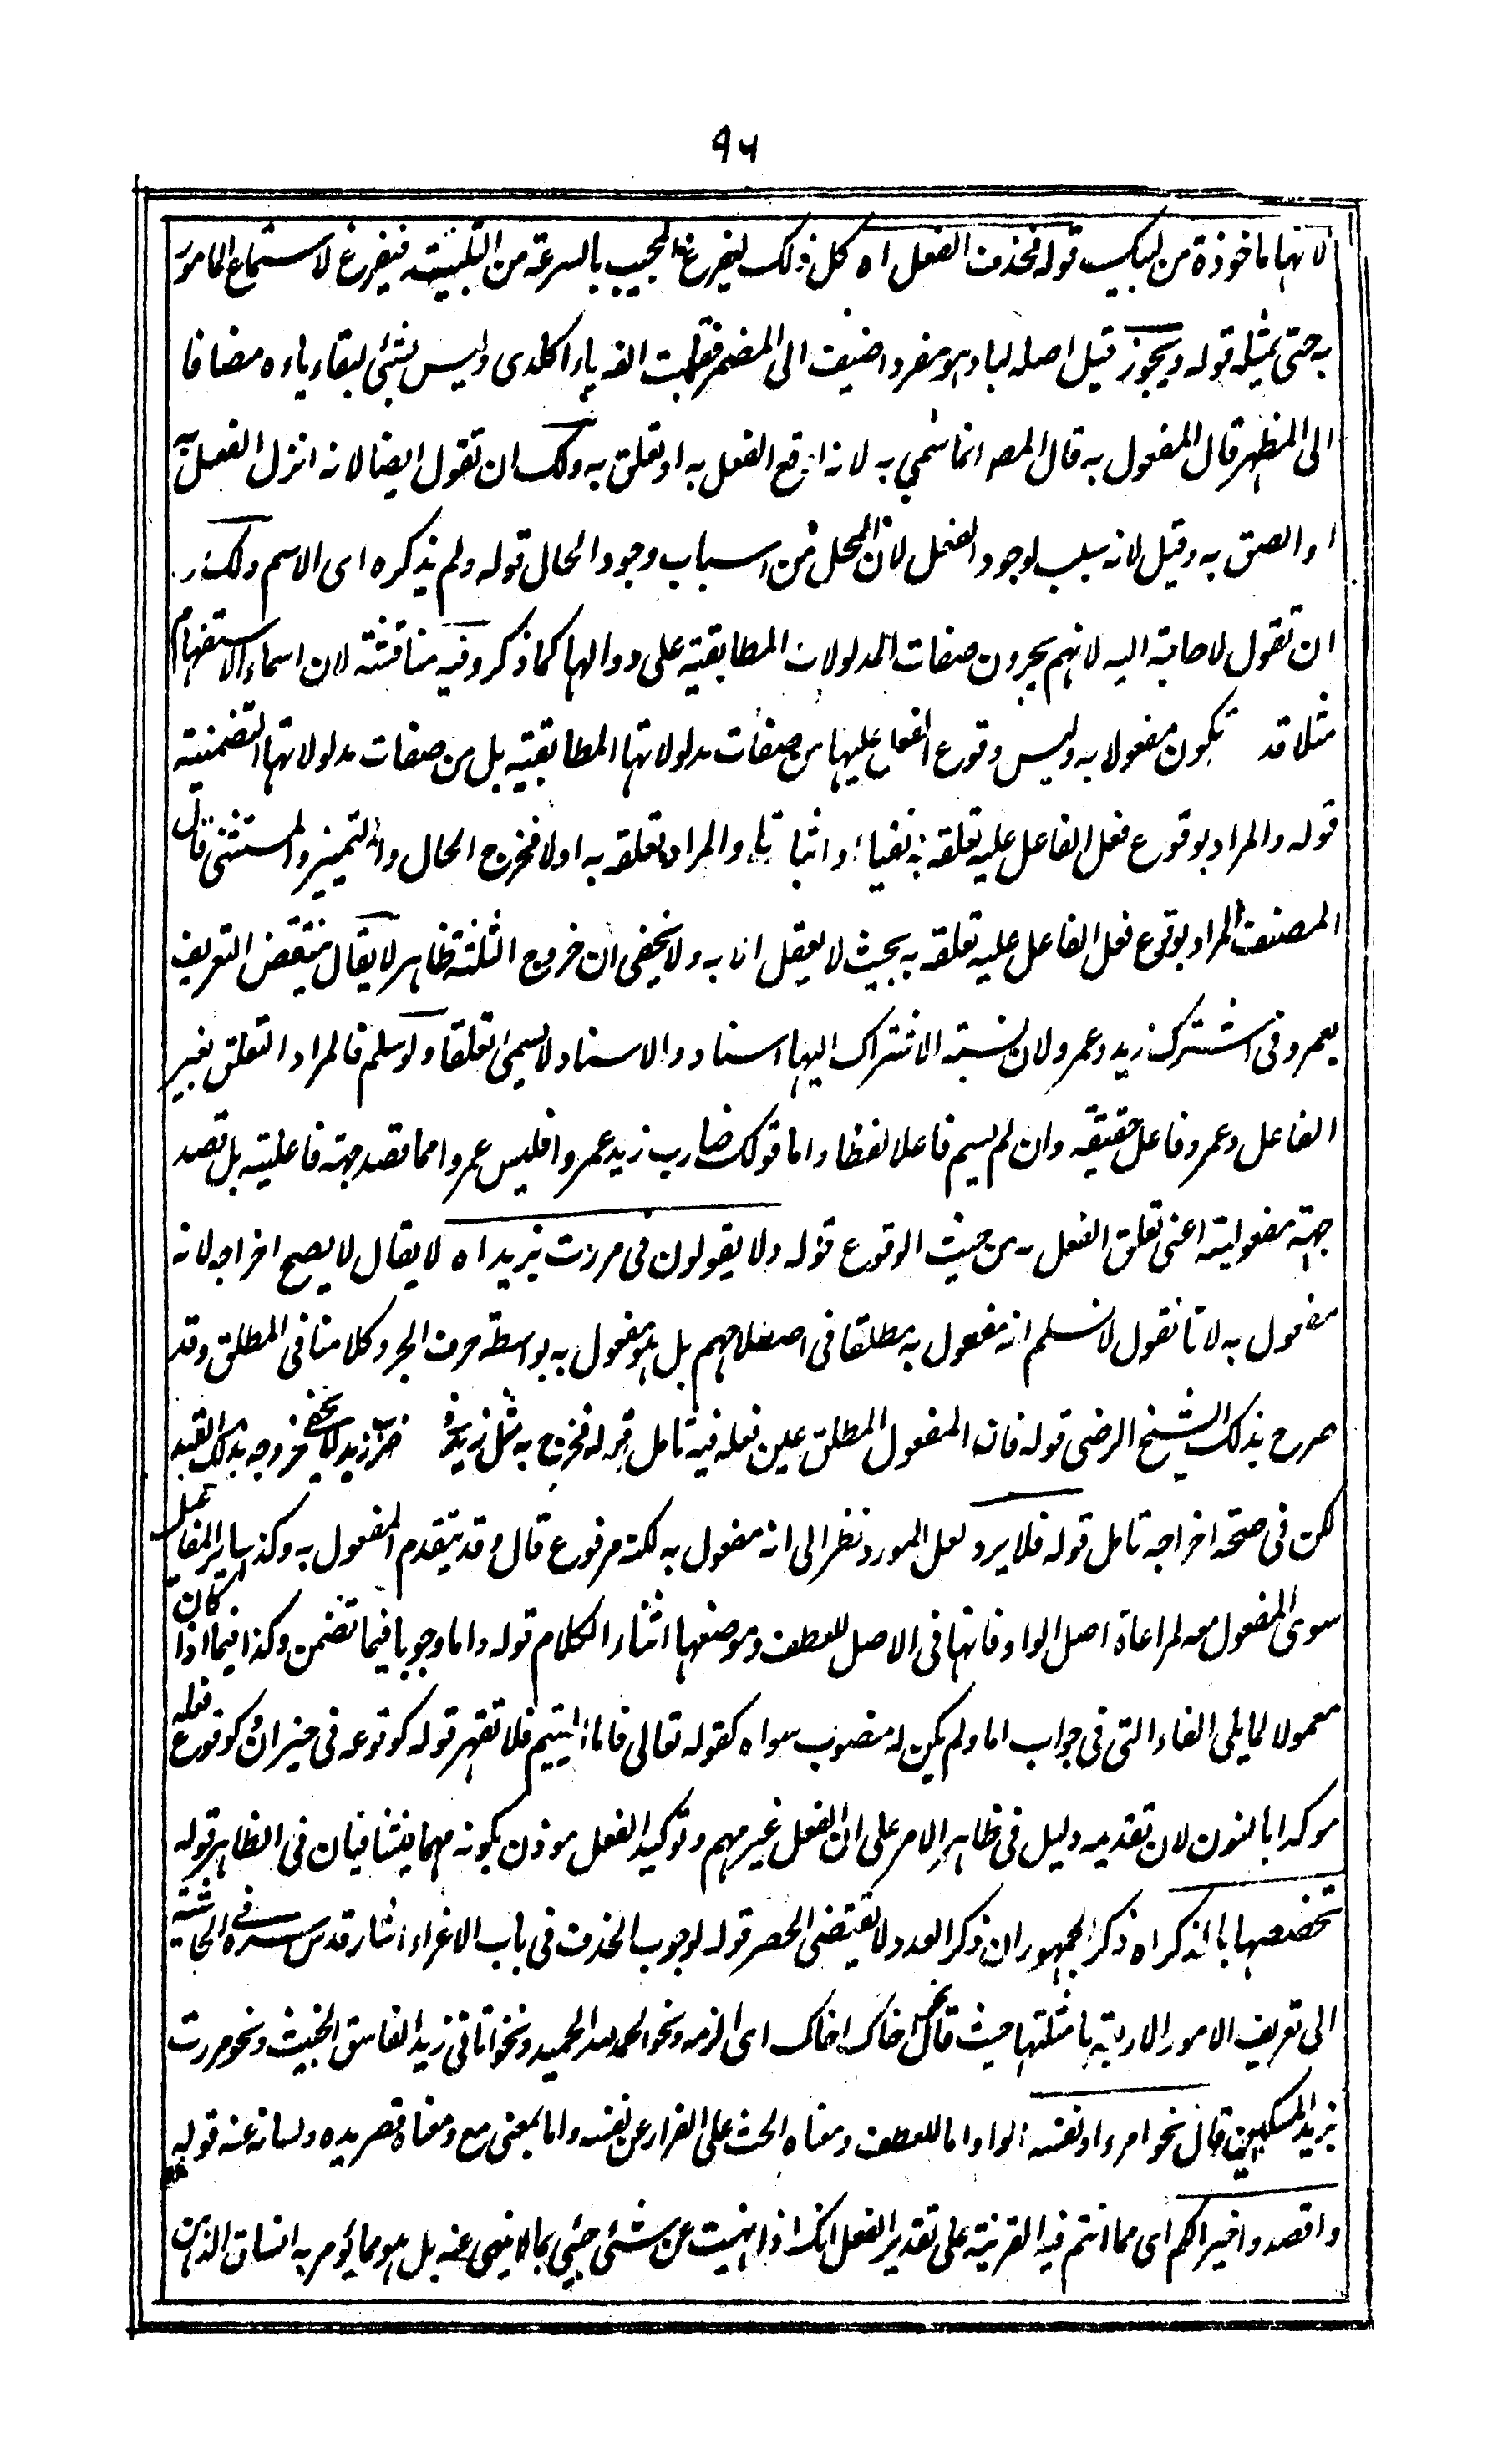 ۹۶
لانها ماخوذة من لبيك قوله فحذف الفعل اه كل ذلك ليفرغ المجيب بالسرعة من التلبية فيتفرغ لاستماع المامور
به حتى يمثيله قوله ويجوز قيل اصله لبا وهو مفرد اضيف الى المضمر فقلبت الفه ياء اكلدى وليس بشئ لبقاء ياءه مضافا
الى المظهر قال المفعول به قال المصـ انما سمي به لانه اوقع الفعل به او تعلق به ولك ان تقول ايضا لانه انزل الفعل به
او الصق به وقيل لانه سبب لوجود الفعل لان المحل من اسباب وجود الحال قوله ولم يذكره اى الاسم ولك
ان تقول لا حاجة اليه لانهم يجرون صفات المدلولات المطابقية على دوالها كما ذكر وفيه مناقشة لان اسماء الاستفهام
مثلا قد تكون مفعولا به وليس وقوع الفعل عليها من صفات مدلولاتها المطابقية بل من صفات مدلولاتها التضمنية
قوله والمراد بوقوع فعل الفاعل عليه تعلقه به نفيا او اثباتا والمراد تعلقه به اولا فخرج الحال والتمييز والمستثنى قال
المصنف المراد بوقوع فعل الفاعل عليه تعلقه به بحيث لا يعقل الا به ولا يخفى ان خروج الثلثة ظاهر لا يقال ينتقض التعريف
بعمرو فى اشترك زيد وعمرو لان نسبة الاشتراك اليهما اسناد والاسناد لا يسمى تعلقا ولو سلم فالمراد التعلق بغير
الفاعل وعمرو فاعل حقيقة وان لم يسم فاعلا لفظا واما قولك ضارب زيد عمروا فليس عمروا مما قصد جهة فاعليته بل قصد
جهة مفعوليته اعنى تعلق الفعل به من حيث الوقوع قوله ولا يقولون فى مررت بزيد اه لا يقال لا يصح اخراجه لانه
مفعول به لانا نقول لا نسلم انه مفعول به مطلقا فى اصطلاحهم بل هو مفعول به بواسطة حرف الجر وكلامنا فى المطلق وقد
صرح بذلك الشيخ الرضى قوله فان المفعول المطلق عين فعله فيه تامل قوله فخرج به مثل زيد فى ضرب زيد لا يخفى خروجه بذلك القيد
لكن فى صحة اخراجه تامل قوله فلا يرد لعل المورد نظر الى انه مفعول به لكنه مرفوع قال وقد يتقدم المفعول به وكذا سائر المفاعيل
سوى المفعول معه لمراعاة اصل الواو فانها فى الاصل للعطف وموضعها اثناء الكلام قوله واما وجوبا فيما تضمن وكذا فيما اذا كان
معمولا لما يلى الفاء التى فى جواب اما ولم يكن له منصوب سواه كقوله تعالى فاما اليتيم فلا تقهر قوله كوقوعه فى حيز ان وكوقوع فعله
موكدا بالنون لان تقديمه دليل فى ظاهر الامر على ان الفعل غير مهم وتوكيد الفعل موذن بكونه مهما فيتنافيان فى الظاهر قوله
تخصصها بالذكر اه ذكر الجمهور ان ذكر العدد لا يقتضى الحصر قوله لوجوب الحذف فى باب الاغراء اشار قدس سره فى الحاشية
الى تعريف الامور الاربعة بامثلتها حيث قال نحو اخاك اخاك اى الزمه ونحو الحمد لله الحميد ونحو اتانى زيد الفاسق الخبيث ونحو مررت
بزيد المسكين قال نحو امروا ونفسه الواو اما للعطف ومعناه الحث على الفرار عن نفسه واما بمعنى مع ومعناه قصر يده ولسانه عنه قوله
واقصدوا خيرا لكم اى مما انتم فيه القرينة على تقدير الفعل انك اذا نهيت عن شئ جئى بما لا ينهى عنه بل هو مما يؤمر به انساق الذهن